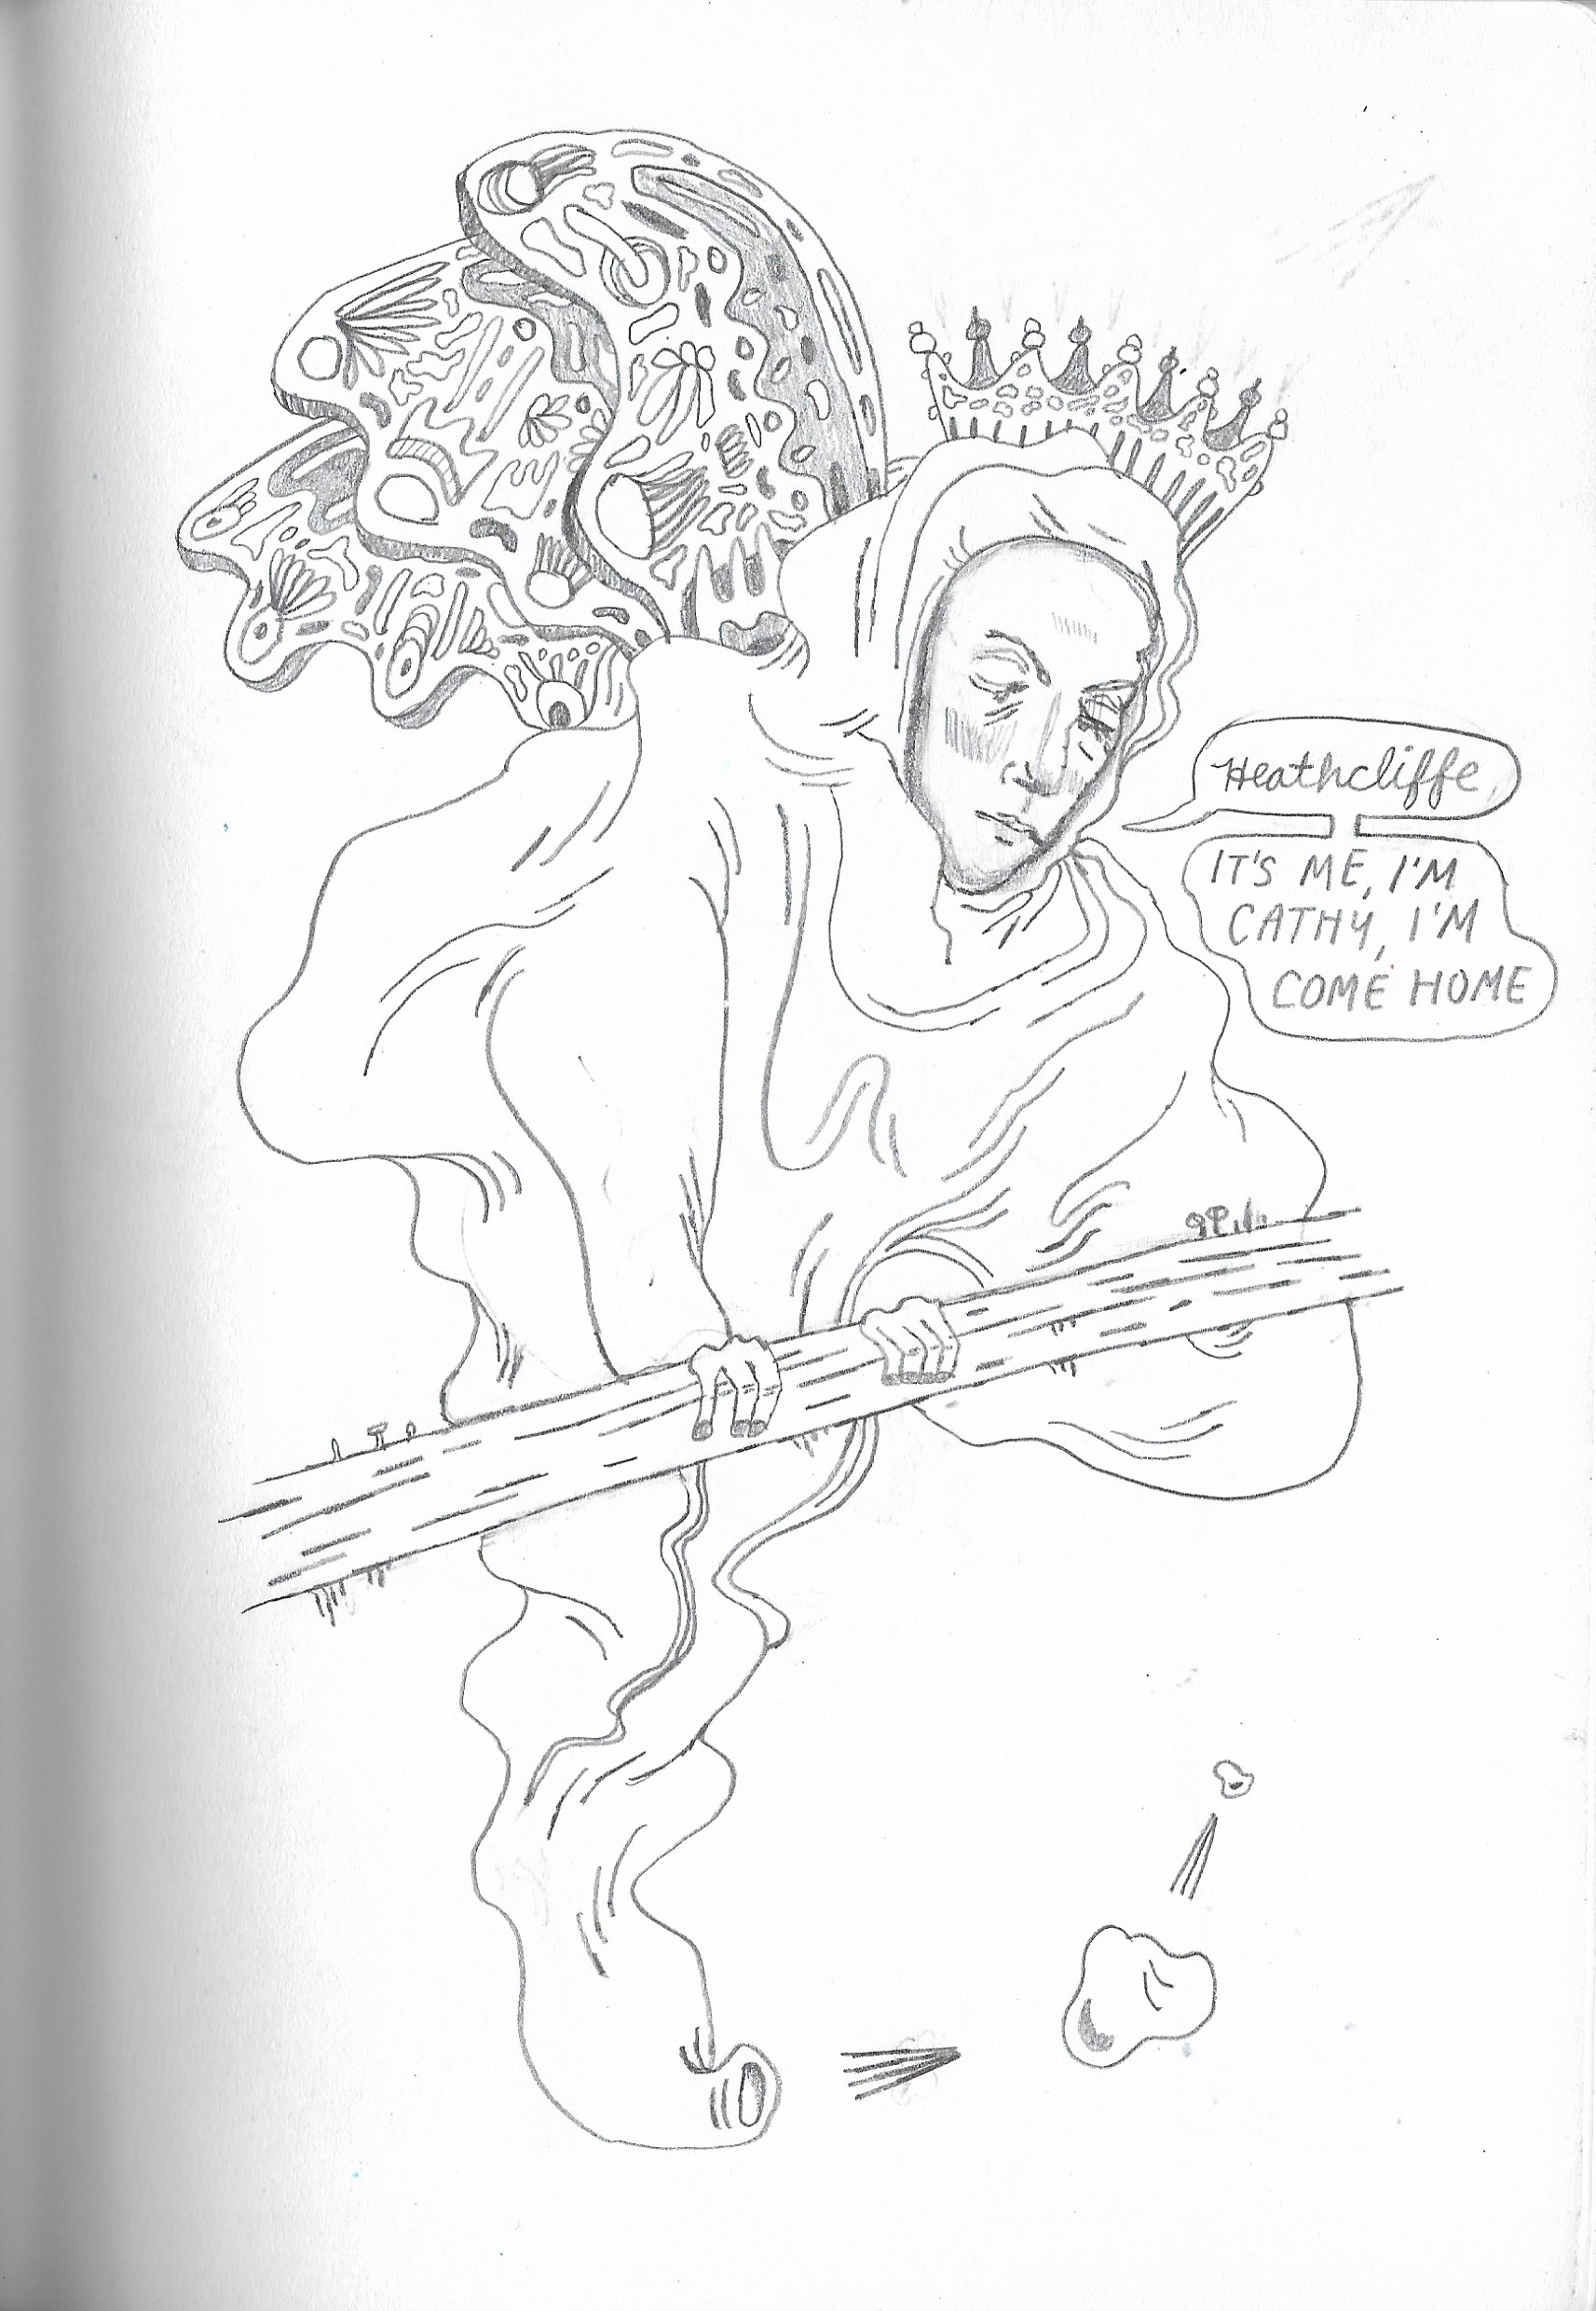 Heathcliffe
IT'S ME, I'M
CATHY, I'M
COME HOME